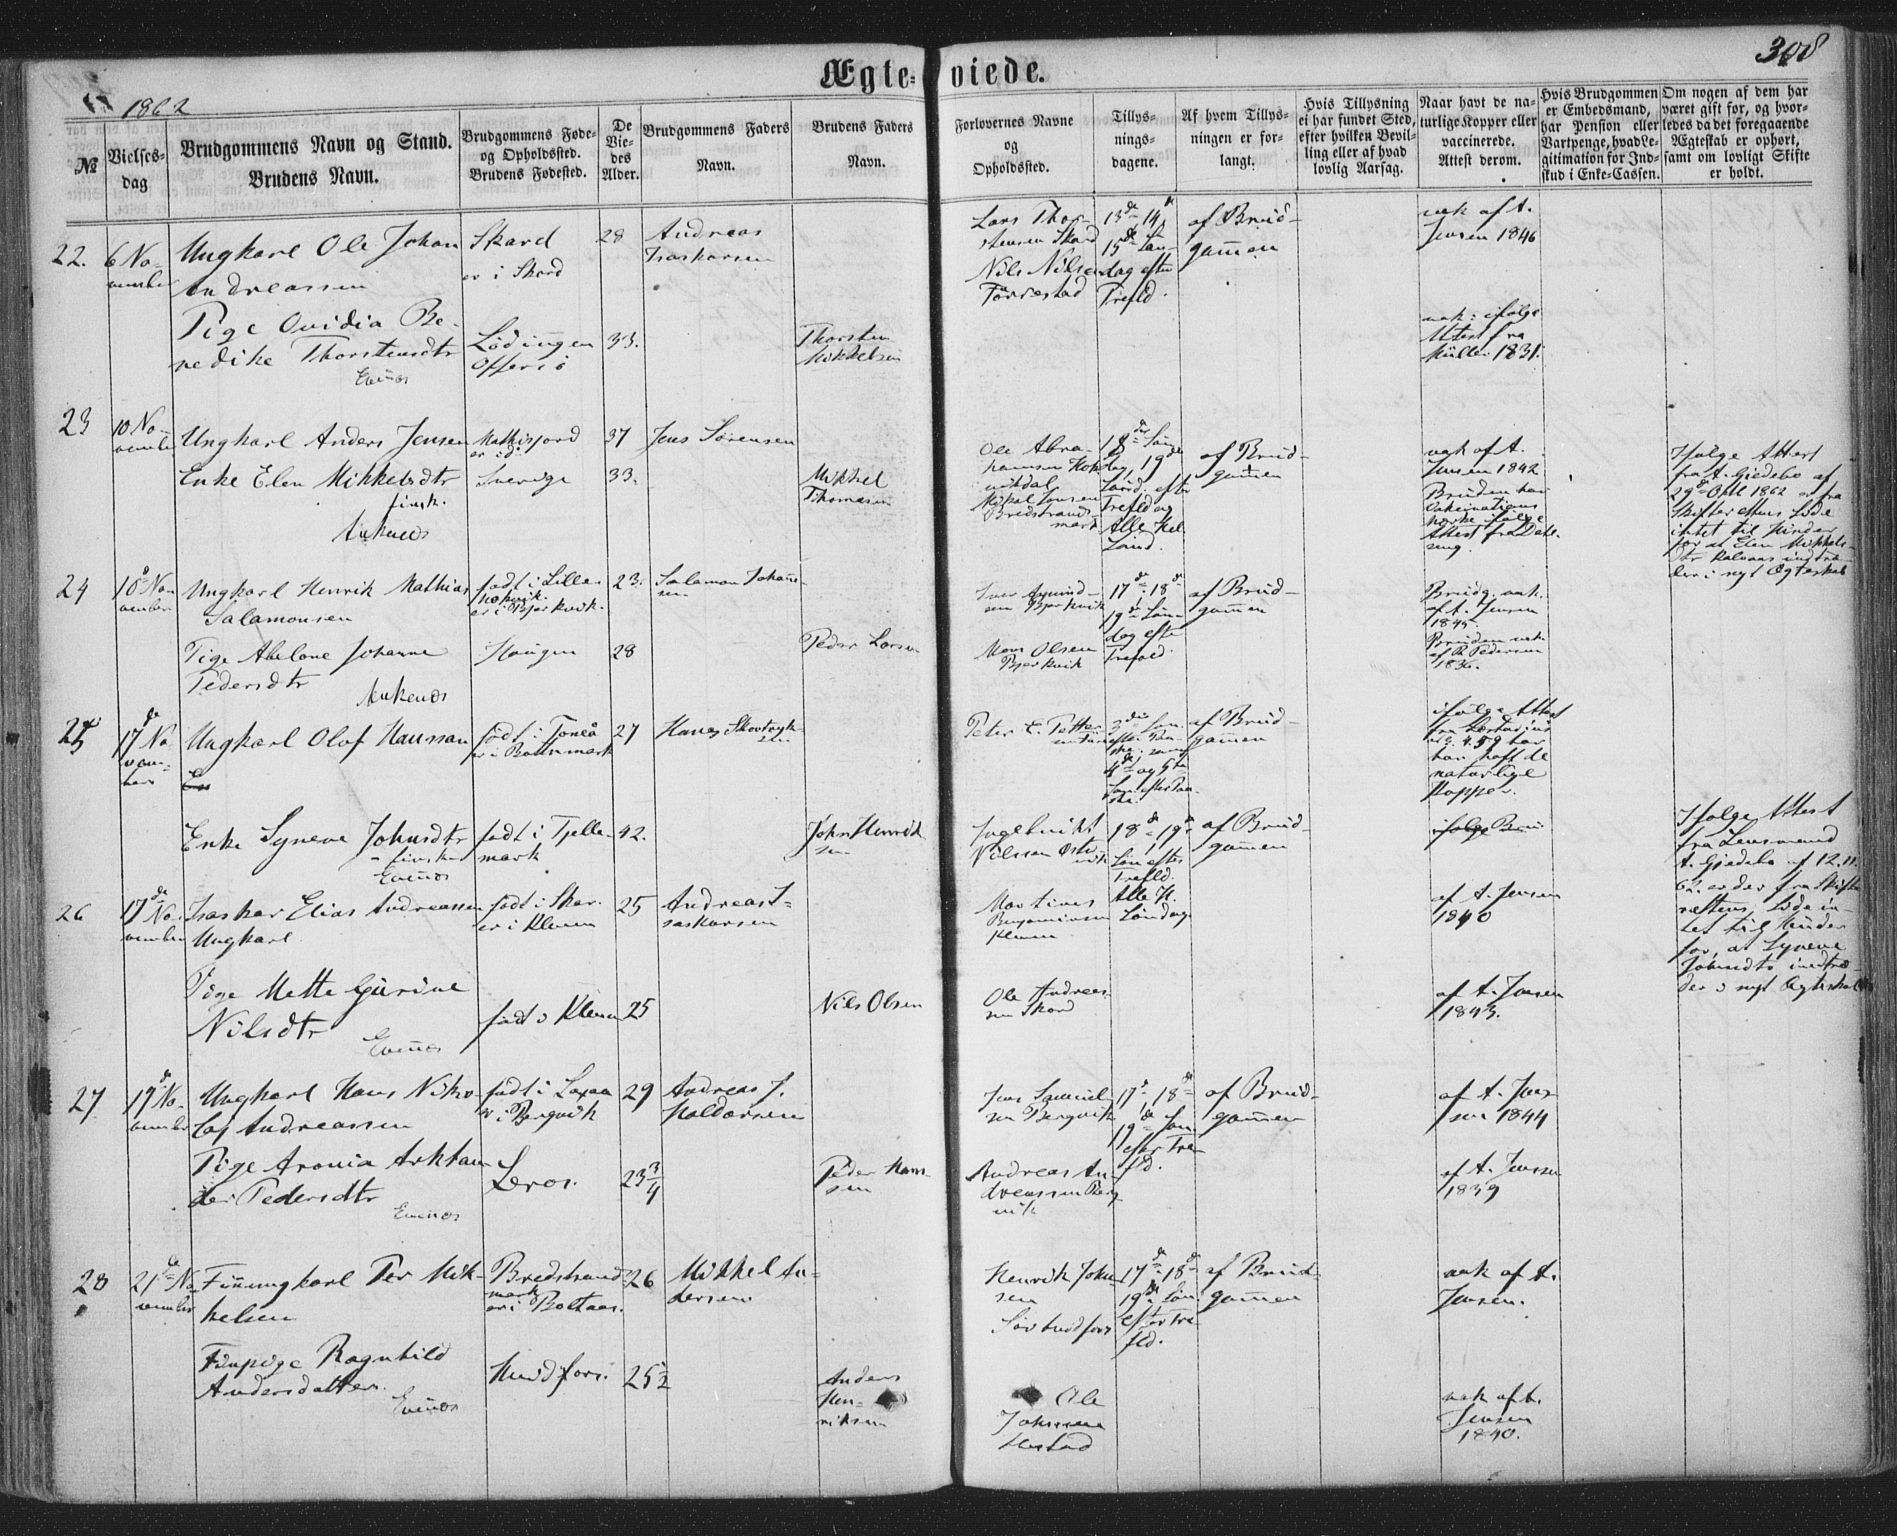 308
Ægte-viede.
1862
№
Vielses-
dag
Brudgommens Navn og Stand.
Brudens Navn.
Brudgommens Føde-
og Opholdssted.
Brudens Fødested.
De
Vie-
des
Alder.
Brudgommens Faders
Navn.
Brudens Faders
Navn.
Forlovernes Navne
og
Opholdssted.
Tillys-
nings-
dagene.
Af hvem Tillys-
ningen er for-
langt.
Hvis Tillysning
ei har fundet Sted,
efter hvilken Bevil-
ling eller af hvad
lovlig Aarsag.
Naar havt de na-
turlige Kopper eller
vaccinerede.
Attest derom.
Hvis Brudgommen
er Embedsmand,
har Pension eller
Vartpenge, hvad Le-
gitimation for Ind-
skud i Enke-Cassen.
Om nogen af dem har
været gift før, og hvor-
ledes da det foregaaende
Ægteskab er ophørt,
samt om lovligt Skifte
er holdt.
22.
6 No-
vember
Ungkarl Ole Johan
Andreassen
Skard
er i Skard
28
Andreas
Isaskarsen
Lars Thor-
stensen Skard
Nils Nilsen
Førrestad
13de 14de
15de Søn-
dag efter
Trefld.
af Brud-
gommen
vak af A.
Jensen 1846
Pige Ovidia Be-
nedike Thorstensdtr
Evenæs
Lødingen
Offersø
33.
Thorsten
Mikkelsen
vak: ifølge
Attest fra
Müller 1831.
23
10 No-
vember
Ungkarl Anders Jensen
er id.
37
Jens Sørensen
Enke Elen Mikkelsdtr
finsk.
Ankenes
Sverige
33.
Mikkel
Thomasen
Ole Abra-
hamsen
Mikal Jonsen
Bredstrands-
mark
18de Søn-
dag, 19de
Sønd. efter
Trefld og
Alle Hel.
Sønd.
af Brud-
gommen
vak af A.
Jensen 1842
Bruden har
Vakcinations
ifølge
Attest fra
Ifølge Attest
fra A. Gjedebo af
29de Oktb 1862 er fra
Skifterettens Side
intet til Hinder
for at Elen Mikkels-
dtr indtræ-
der i nyt Ægteskab
24
10de No-
vember
Ungkarl Henrik Mathias
Salamonsen
født i Lille-
er i Bjerkvik.
23.
Salamon Johanne-
sen
Iver Amund-
sen Bjerkvik
17de 18de
19de Søn-
dag efter
Trefold.
af Brud-
gommen
Brudg. vak.
af A. Jensen
1845.
Pige Abelone Johanne
Pedersdtr
Ankenæs
Haugen
28
Peder Larsen
Mons Olsen
Bjerkvik
Bruden vak
af P. Pedersen
1836.
25
17de No-
vem-
ber
Ungkarl Olof Hanssan
født i Torneå
27
Hans
Peter
af Brud-
gommen
ifølge Attest
fra
har
han haft de
naturlige
Kopper.
Enke Syneve Johnsdtr
finsk
Evenæs
født i Fjelle-
mark
42.
John Henrik-
sen
Ingebrikt
Nilssen
18de 19de
Søn efter
Trefld.
Alle H.
Søndag
af Brud-
gommen
Ifølge Attest
fra Lensmand
A. Gjedebo af 12.11.
62. er der fra Skifte-
rettens Side in-
tet til Hinder
for, at Syneve
Johnsdtr indtræ-
der i nyt Ægteskab
26
17de No-
vember
Isaskar Elias Andreassen
Ungkarl.
født i Skar.
er i Kleven
25
Andreas I-
saskarsen
Martines
Benjaminsen
Kleven
af A. Jensen
1840
Pige Mette Gurine
Nilsdtr
Evenæs
født i Kleven
25
Nils Olsen
Ole Andreas-
sen Skard
af A. Jensen
1843.
27
19de No-
vember
Ungkarl Hans Niko-
laj Andreassen
født i Laxaa
er i Bergvik
29
Andreas J.
Haldorsen
Jens Samuel-
sen Bergvik
17de, 18de
19de Søn.
efter Tre-
fld.
af Brud-
gommen
af A. Jen-
sen 1844
Pige Aronia
Pedersdtr
Evenæs
Leros.
23 3/4
Peder Han-
sen
Andreas An-
dreassen Berg-
vik
af A. Jensen
1839
28
21de No-
vember
Finungkarl Per Mik-
kelsen
Bredstrand-
mark
er i Boltaas.
26
Mikkel An-
dersen
Henrik John-
sen
17de 18de
19de Søn.
efter Tre-
fld.
af Brud-
gommen
vak af A.
Jensen.
Finpige Ragnhild
Andersdatter.
Evenæs
25 1/2
Anders
Hen-
riksen
Ole
Johnsen
vak af A.
Jensen
1840.